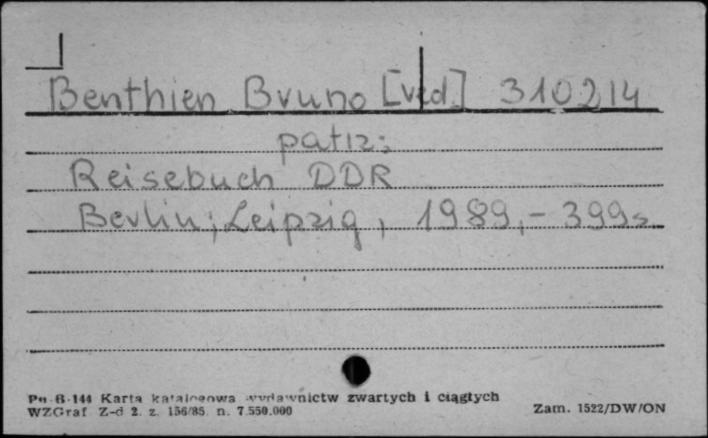 Benthien Bruno [red.] 310214
patrz:
Reisebuch DDR
Berlin; Leipzig, 1989,- 399s.
Pu-B-144 Karta katalogowa wydawnictw zwartych i ciągłych
WZGraf. Z-d 2. z. 156/85. n. 7.550.000
Zam. 1522/DW/ON